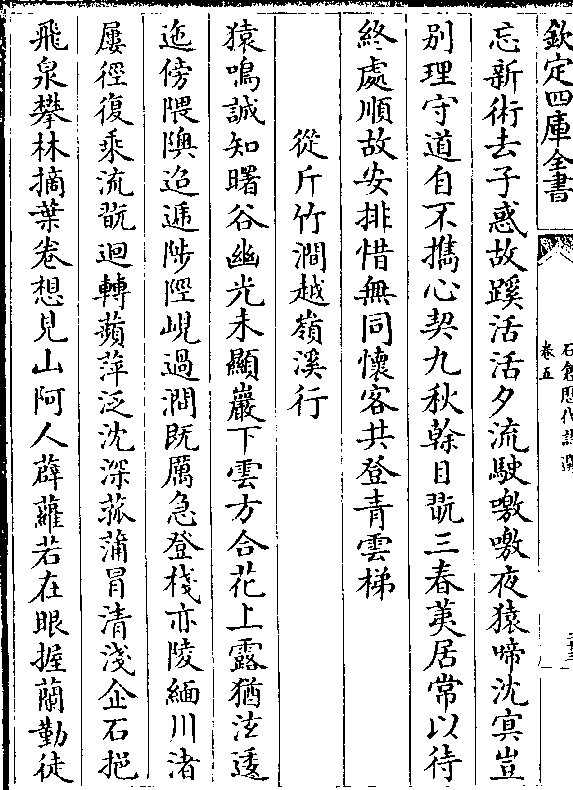 欽定四庫全書
石倉歷代詩選
卷五
忘新術去子惑故蹊活活夕流駛噭噭夜猿啼沈冥豈
別理守道自不擕心契九秋榦目翫三春荑居常以待
終處順故安排惜無同懷客共登青雲梯
從斤竹澗越嶺溪行
猿鳴誠知曙谷幽光未顯巖下雲方合花上露猶泫逶
迤傍隈隩迢遞陟陘峴過澗既厲急登棧亦陵緬川渚
屢徑復乘流翫迴轉蘋萍泛沈深菰蒲冒清淺企石挹
飛泉攀林摘葉卷想見山阿人薜蘿若在眼握蘭勤徒